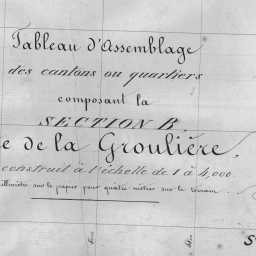 Tableau d'Assemblage
des cantons ou quartiers
composant la
SECTION B.
e de la Groulière.
construit à l'échelle de 1 à 4,000.
illimètre sur le papier pour quatre mètres sur le terrain.
S